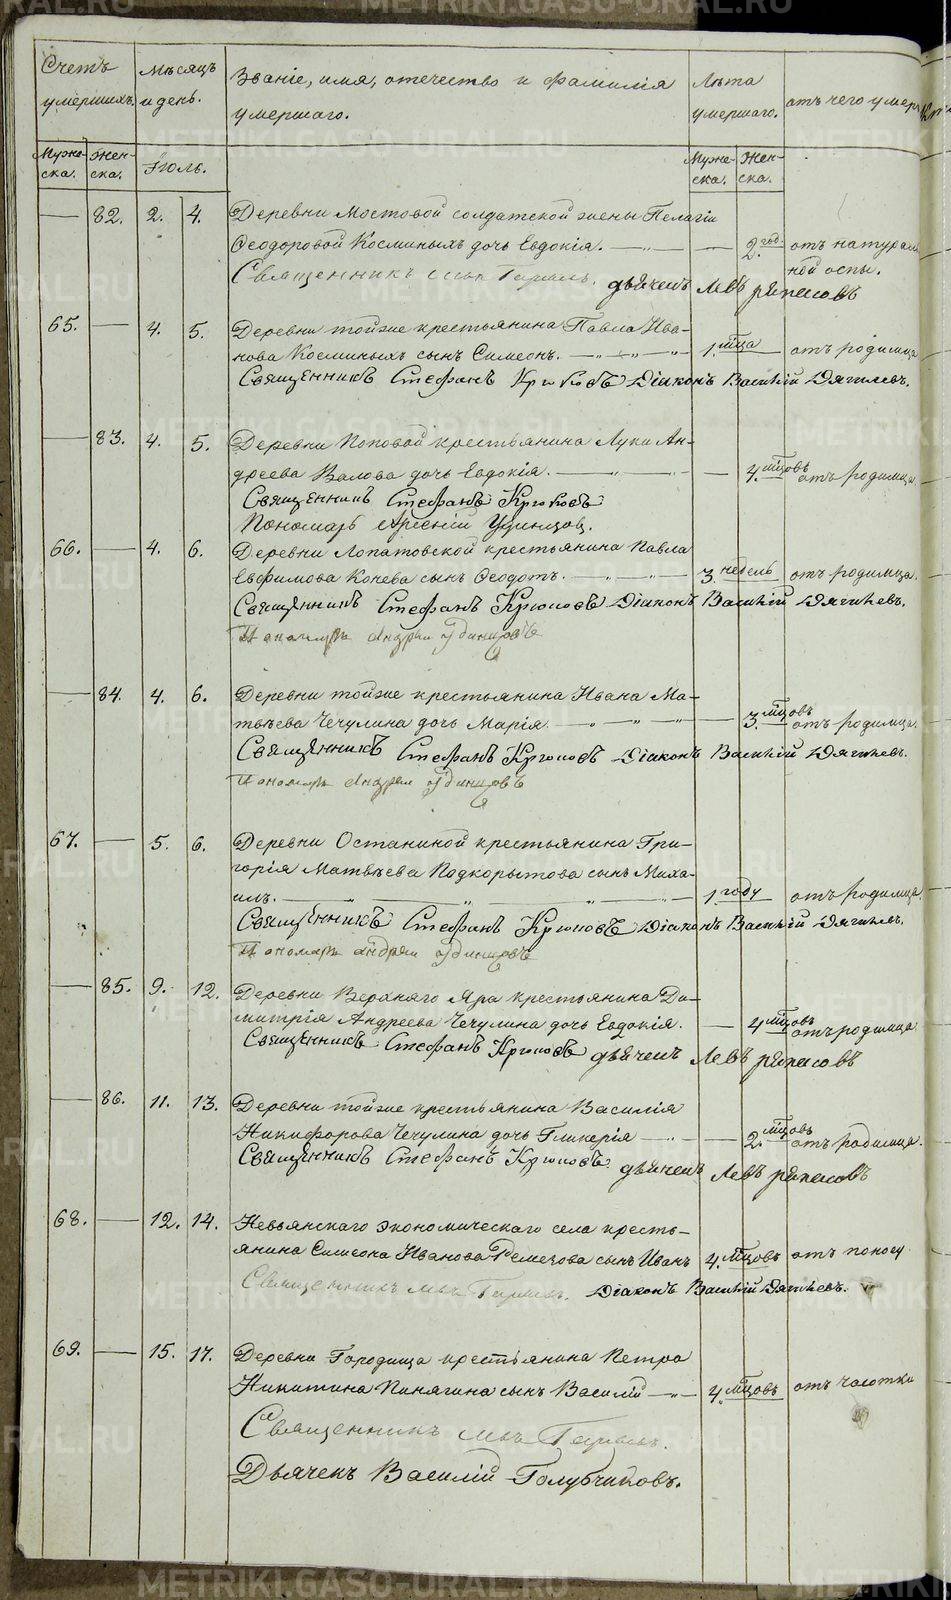 Счетъ умершихъ.
Мѣсяцъ и день.
Званіе, имя, отечество и фамилія умершаго.
Лѣта умершаго.
отъ чего умеръ
Муже-ска. Жен-ска. Іюль. Муже-ска. Жен-ска.
82. 2. 4. Деревни Мостовой солдатской жены Пелагіи
Ѳеодоровой Косминыхъ дочь Евдокія. 2. год. отъ натураль
ной оспы.
Священникъ дьячекъ Левъ
65. 4. 5. Деревни тойже крестьянина Павла Ива-
нова Косминыхъ сынъ Симеонъ. 1. мца отъ родимца
Священникъ Стефанъ Крюковъ Діаконъ Василій Дягилевъ.
83. 4. 5. Деревни Поповой крестьянина Луки Ан-
дреева Валова дочь Евдокія. 4. мцовъ отъ родимца.
Священникъ Стефанъ Крюковъ
Пономарь Удинцов.
66. 4. 6. Деревни Лопатовской крестьянина Павла
Евфимова Конева сынъ Ѳеодотъ. 3. недель отъ родимца.
Священникъ Стефанъ Крюковъ Діаконъ Василій Дягилевъ.
Пономарь Андрей Удинцовъ
84. 4. 6. Деревни тойже крестьянина Ивана Ма-
твѣева Чечулина дочь Марія. 3. мцовъ отъ родимца.
Священникъ Стефанъ Крюковъ Діаконъ Василій Дягилевъ.
Пономарь Андрей Удинцовъ
67. 5. 6. Деревни Останиной крестьянина Гри-
горія Матвѣева Подкорытова сынъ Миха-
илъ. 1. году отъ родимца.
Священникъ Стефанъ Крюковъ Діаконъ Василій Дягилевъ.
Пономарь Андрей Удинцовъ
85. 9. 12. Деревни Верхняго Яра крестьянина Ди-
митрія Андреева Чечулина дочь Евдокія. 4 мцовъ отъ родимца
Священникъ Стефанъ Крюковъ дьячекъ Левъ
86. 11. 13. Деревни тойже крестьянина Василія
Никифорова Чечулина дочь Гликерія 2. мцовъ отъ родимца.
Священникъ Стефанъ Крюковъ дьячекъ Левъ
68. 12. 14. Невьянскаго экономическаго села кресть-
янина Симеона Иванова Ремезова сынъ Иванъ 4. мцовъ отъ поносу
Священникъ Діаконъ Василій Дягилевъ.
69. 15. 17. Деревни Городища крестьянина Петра
Никитина Пинягина сынъ Василій 4. мцовъ отъ чахотки
Священникъ
Дьячекъ Василій Голубчиковъ.
METRIKI.GASO-URAL.RU